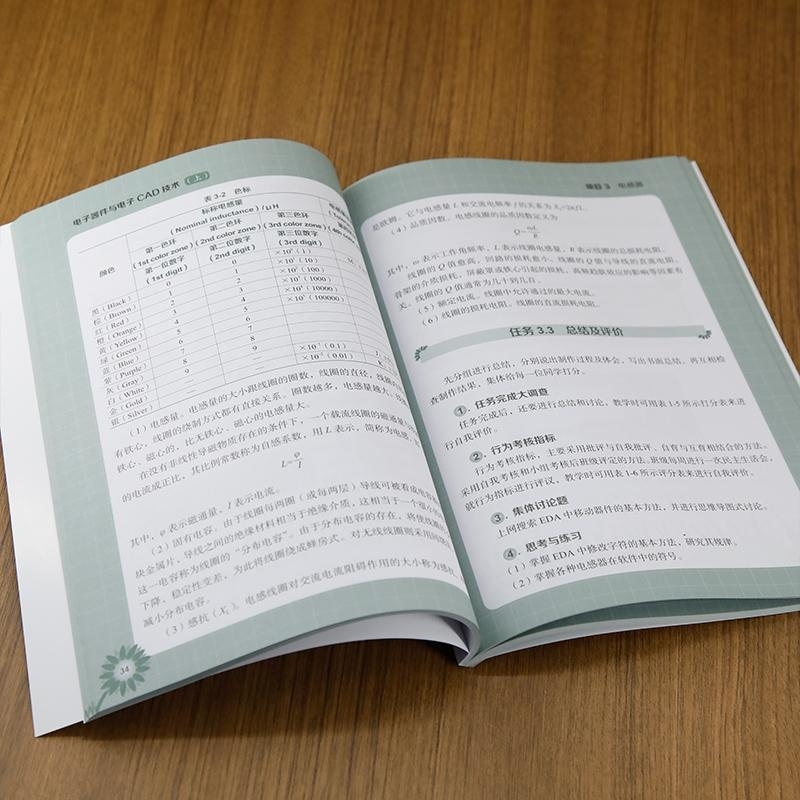 电子器件与电子 CAD 技术（上）
表 3-2 色标
标称电感量
（Nominal inductance）/μH
颜色
第一色环
（1st color zone）
第一位数字
（1st digit）
第二色环
（2nd color zone）
第二位数字
（2nd digit）
第三色环
（3rd color zone）
第三位数字
（3rd digit）
黑（Black） 0 0 ×10⁰（1）
棕（Brown） 1 1 ×10¹（10）
红（Red） 2 2 ×10²（100）
橙（Orange） 3 3 ×10³（1000）
黄（Yellow） 4 4 ×10⁴（10000）
绿（Green） 5 5 ×10⁵（100000）
蓝（Blue） 6 6
紫（Purple） 7 7
灰（Gray） 8 8
白（White） 9 9
金（Gold） — — ×10⁻¹（0.1）
银（Silver） — — ×10⁻²（0.01）
（1）电感量。电感量的大小跟线圈的圈数，线圈的直径，线圈内
有铁心，线圈的绕制方式都有直接关系。圈数越多，电感量越大，
铁心、磁心的，比无铁心、磁心的电感量大。
在没有非线性导磁物质存在的条件下，一个载流线圈的磁通量
的电流成正比，其比例常数称为自感系数，用 L 表示，简称为电感，
L=φ/I
其中，φ 表示磁通量，I 表示电流。
（2）固有电容。由于线圈每两圈（或每两层）导线可被看成电容
块金属片，导线之间的绝缘材料相当于绝缘介质，这相当于一个很小的
这一电容称为线圈的“分布电容”。由于分布电容的存在，将使线圈的
下降，稳定性变差，为此将线圈绕成蜂房式。对无线线圈则采用
减小分布电容。
（3）感抗（X_L）。电感线圈对交流电流阻碍作用的大小称为感抗，
34
项目 3 电感器
是欧姆。它与电感量 L 和交流电频率 f 的关系为 X_L=2πfL。
（4）品质因数。电感线圈的品质因数定义为
Q=ωL/R
其中，ω 表示工作角频率，L 表示线圈电感量，R 表示线圈的总损耗电阻。
线圈的 Q 值愈高，回路的损耗愈小。线圈的 Q 值与导线的直流电阻，
骨架的介质损耗，屏蔽罩或铁心引起的损耗，高频趋肤效应的影响等因素有
关。线圈的 Q 值通常为几十到几百。
（5）额定电流。线圈中允许通过的最大电流。
（6）线圈的损耗电阻。线圈的直流损耗电阻。
任务 3.3 总结及评价
先分组进行总结，分别说出制作过程及体会，写出书面总结，再互相检
查制作结果，集体给每一位同学打分。
1. 任务完成大调查
任务完成后，还要进行总结和讨论，教学时可用表 1-5 所示打分表来进
行自我评价。
2. 行为考核指标
行为考核指标，主要采用批评与自我批评、自育与互育相结合的方法。
采用自我考核和小组考核后班级评定的方法。班级每周进行一次民主生活会，
就行为指标进行评议，教学时可用表 1-6 所示评分表来进行自我评价。
3. 集体讨论题
上网搜索 EDA 中移动器件的基本方法，并进行思维导图式讨论。
4. 思考与练习
（1）掌握 EDA 中修改字符的基本方法，研究其规律。
（2）掌握各种电感器在软件中的符号。